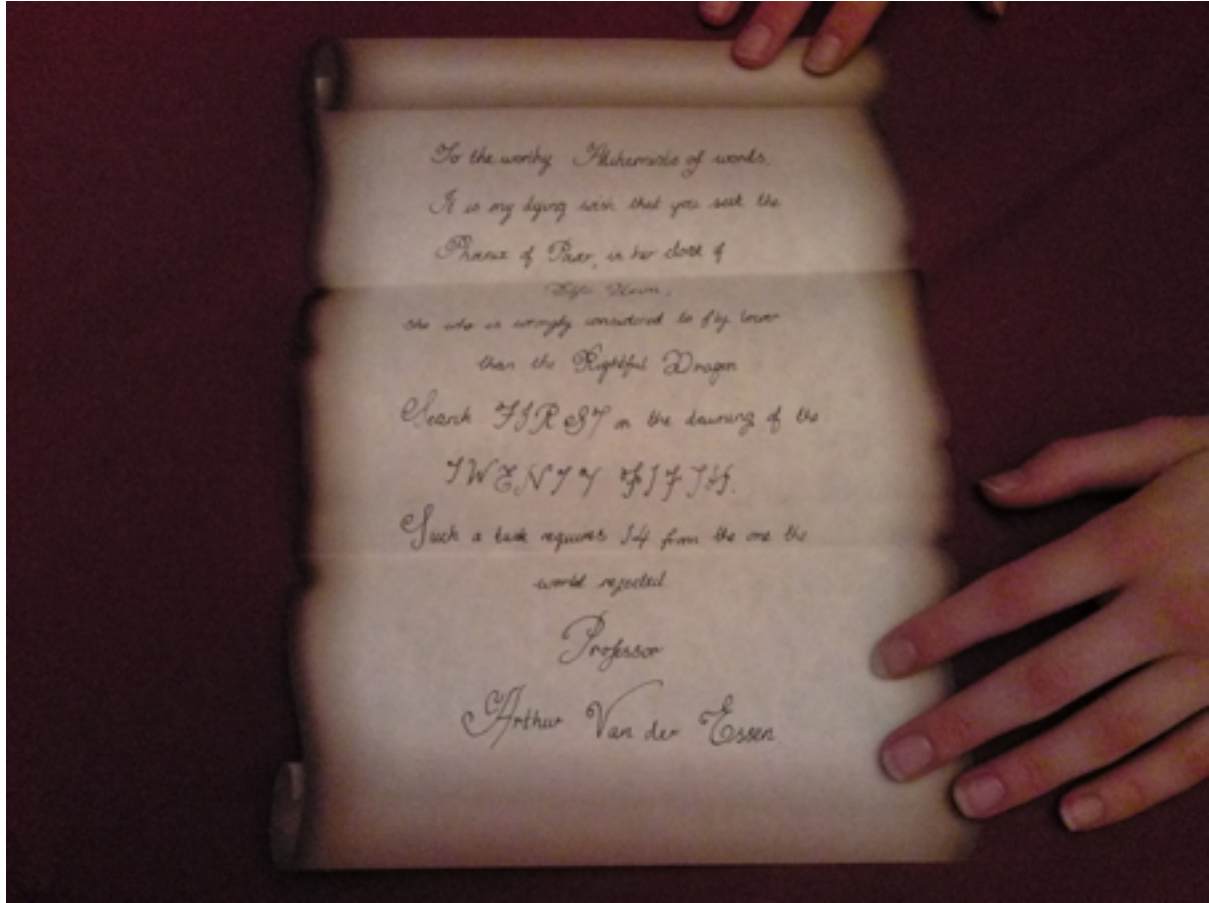 To the worthy Alchemists of words,
It is my dying wish that you seek the
Phoenix of in her cloak of
she who is wrongly considered to fly lower
than the Rightful Dragon
Search FIRST on the dawning of the
TWENTY FIFTH.
Such a task requires 14 from the one the
world rejected.
Professor
Arthur Van der Essen